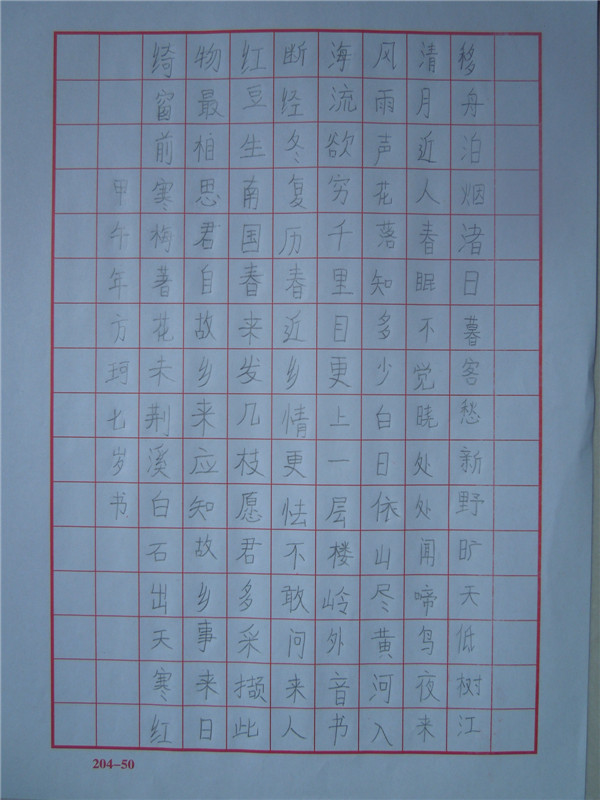 移舟泊烟渚日暮客愁新野旷天低树江
清月近人春眠不觉晓处处闻啼鸟夜来
风雨声花落知多少白日依山尽黄河入
海流欲穷千里目更上一层楼岭外音书
断经冬复历春近乡情更怯不敢问来人
红豆生南国春来发几枝愿君多采撷此
物最相思君自故乡来应知故乡事来日
绮窗前寒梅著花未荆溪白石出天寒红
甲午年方珂七岁书
204-50